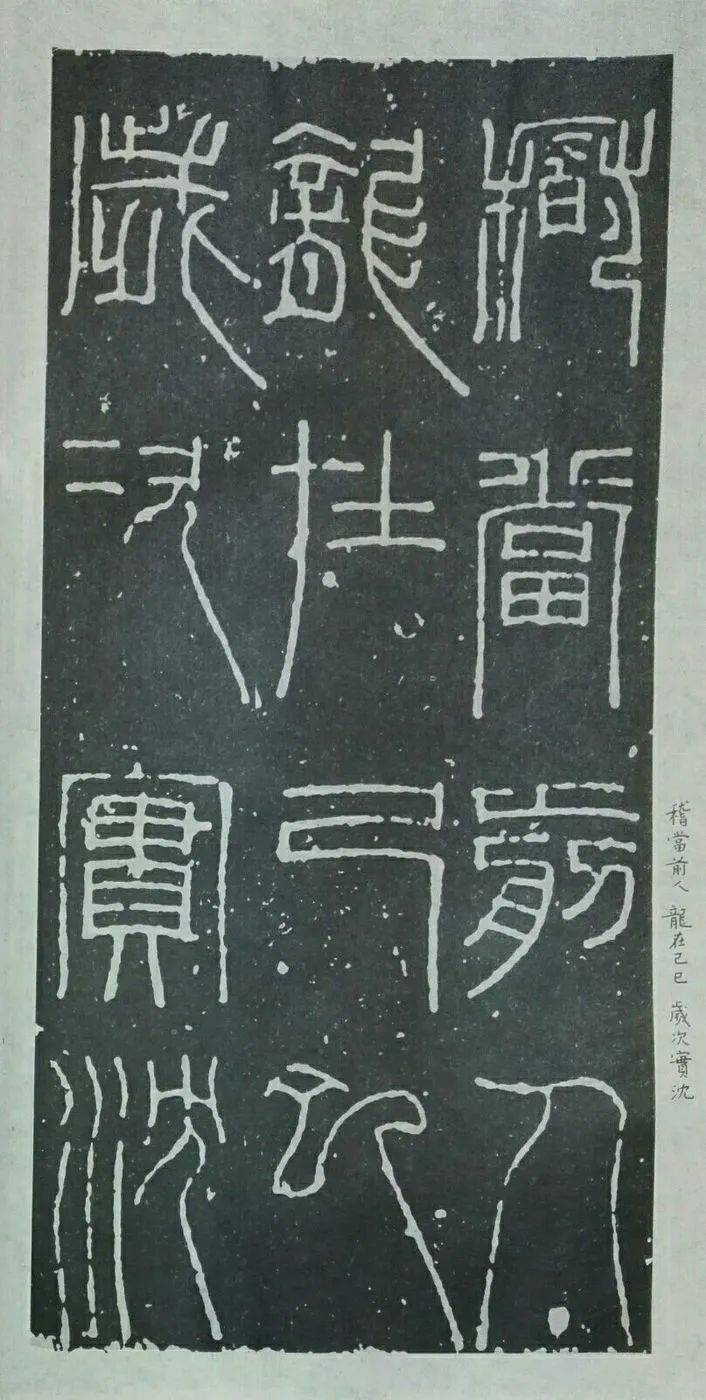 稽當前人
龍在己巳
歲次實沈
稽當前人 龍在己巳 歲次實沈